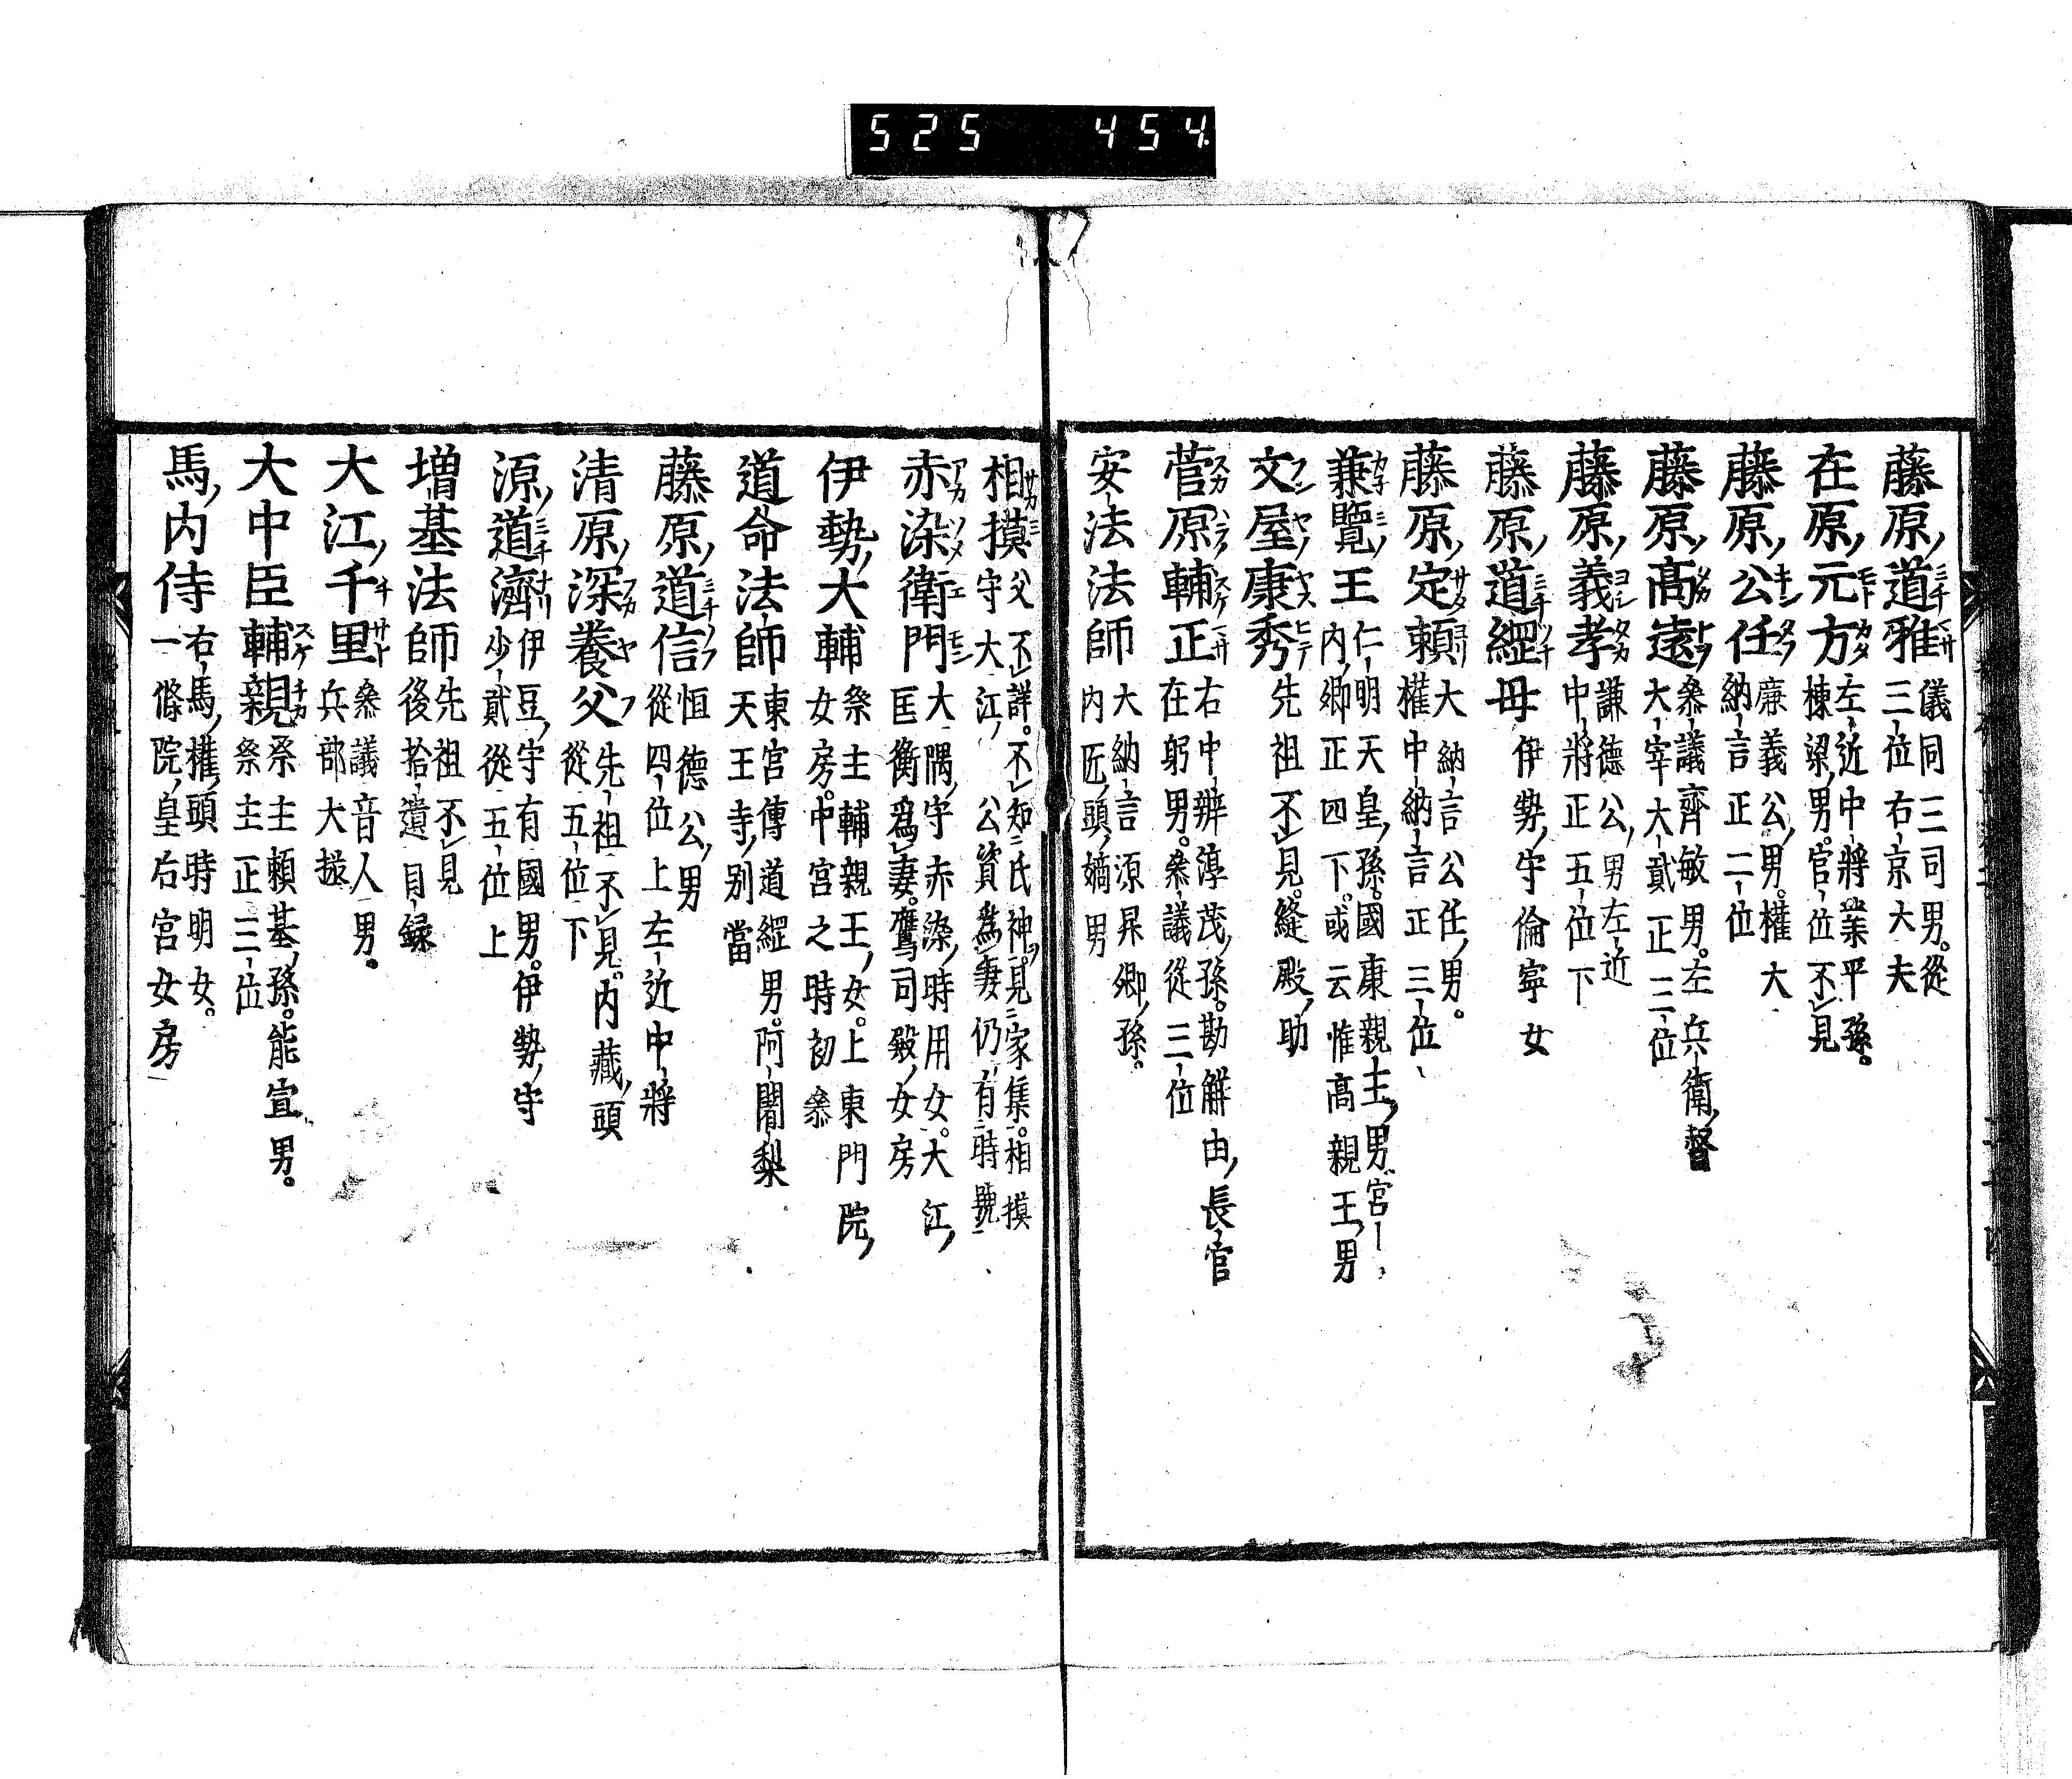 525 454
藤原道雅 儀同三司男。從
三位右京大夫
在原元方 左近中將業平孫。
棟梁男。官位不見
藤原公任 廉義公男。權大
納言正二位
藤原高遠 參議齊敏男。左兵衛督
大宰大貳正三位
藤原義孝 謙德公男左近
中將正五位下
藤原道經母 伊勢守倫寧女
藤原定賴 大納言公任男。
權中納言正三位
兼覽王 仁明天皇孫。國康親王男宮
內卿正四下。或云惟高親王男
文屋康秀 先祖不見。縫殿助
菅原輔正 右中辨淳茂孫。勘解由長官
在躬男。參議從三位
安法法師 大納言源昇卿孫。
內匠頭嫡男
相摸 父不詳。不知氏神。見家集。相摸
守大江公資為妻仍有時號
赤染衛門 大隅守赤染時用女。大江
匡衡為妻。鷹司殿女房
伊勢大輔 祭主輔親王女。上東門院
女房。中宮之時初參
道命法師 東宮傳道經男。阿闍梨
天王寺別當
藤原道信 恒德公男
從四位上左近中將
清原深養父 先祖不見。內藏頭
從五位下
源道濟 伊豆守有國男。伊勢守
少貳從五位上
增基法師 先祖不見
後拾遺目録
大江千里 參議音人男。
兵部大掾
大中臣輔親 祭主賴基孫。能宣男。
祭主正三位
馬內侍 右馬權頭時明女。
一條院皇后宮女房